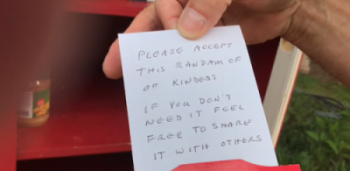 PLEASE ACCEPT
THIS RANDAM OF
OF KINDESS
IF YOU DON'T
NEED IT FEEL
FREE TO SHARE
IT WITH OTHERS